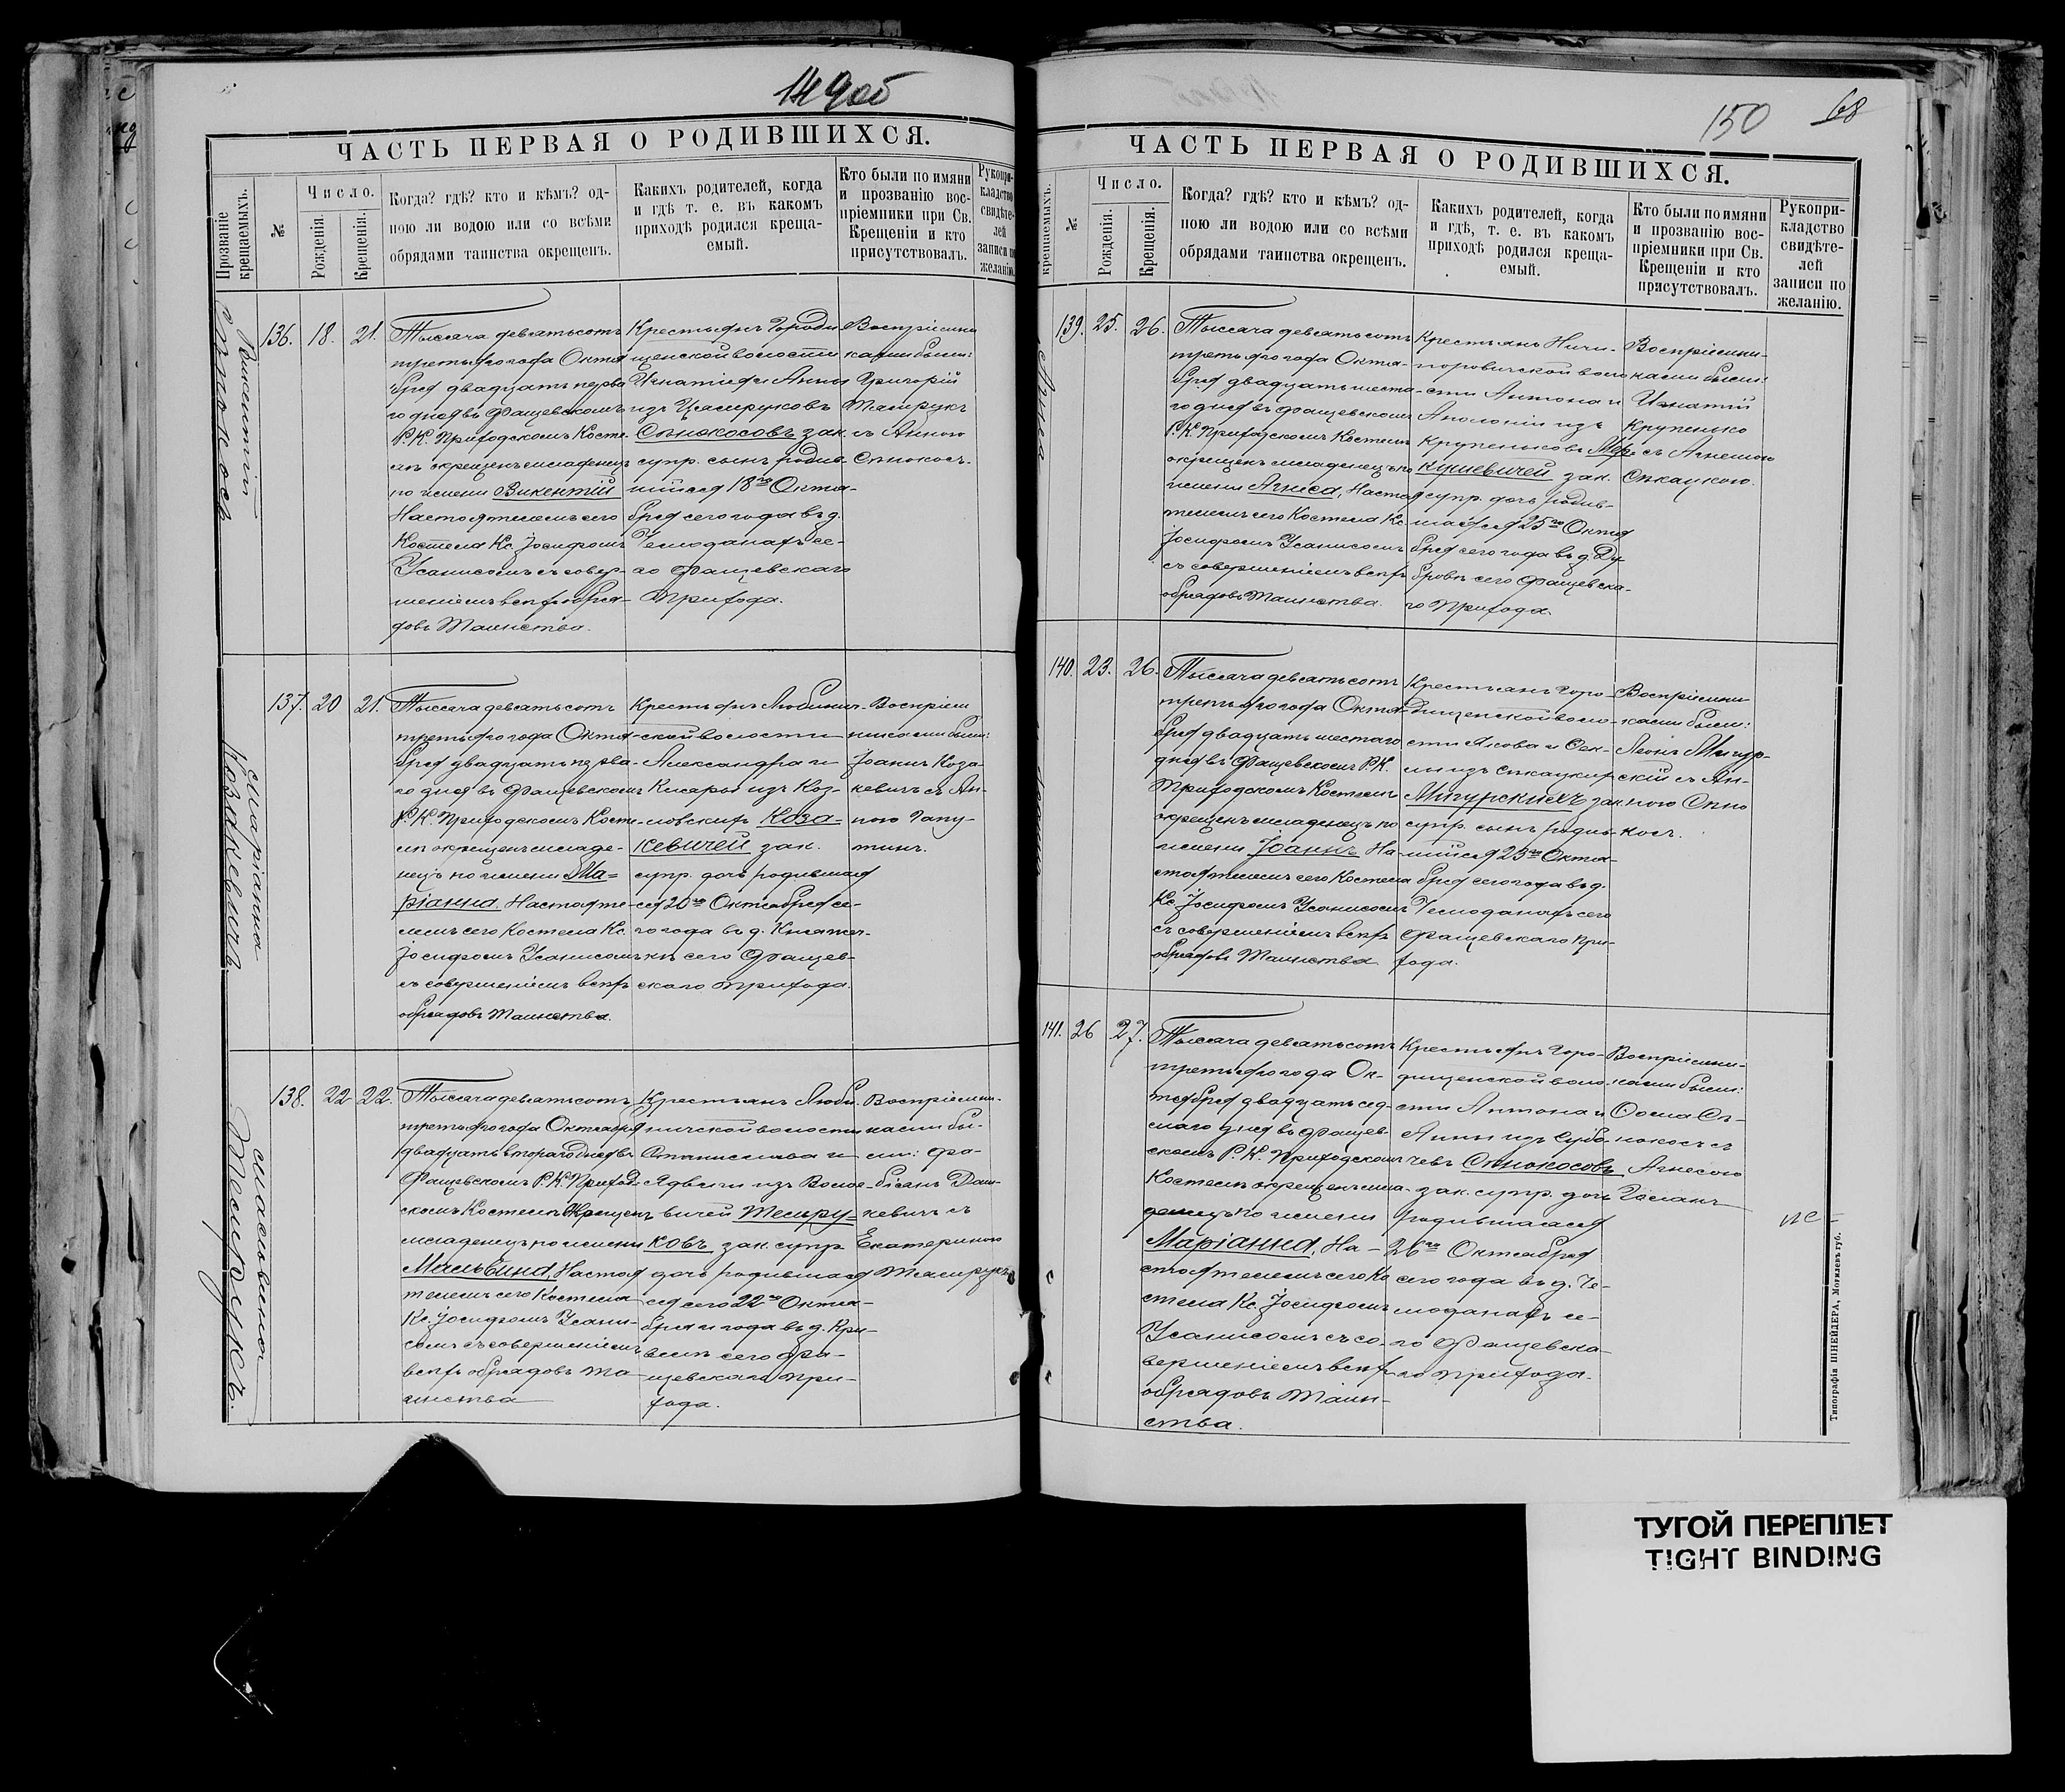 149об
ЧАСТЬ ПЕРВАЯ О РОДИВШИХСЯ.
Прозваніе крещаемыхъ.
№
Число.
Рожденія.
Крещенія.
Когда? гдѣ? кто и кѣмъ? од-
ною ли водою или со всѣми
обрядами таинства окрещенъ.
Какихъ родителей, когда
и гдѣ т. е. въ какомъ
приходѣ родился креща-
емый.
Кто были по имяни
и прозванію вос-
пріемники при Св.
Крещеніи и кто
присутствовалъ.
Рукопри-
кладство
свидѣте-
лей
записи по
желанію.
Викентій
Сѣнокосъ
136. 18. 21.
Тысяча девятьсотъ
третьяго года Октя
бря двадцать перва
го дня въ Фащевскомъ
Р. К. Приходскомъ Косте-
лѣ окрещенъ младенецъ
по имени Викентій
Настоятелемъ сего
Костела Кс. Іосифомъ
Усанисомъ съ совер-
шеніемъ всѣхъ обря-
довъ Таинства.
Крестьянъ Городи
щенской волости
Игнатія и Анны
изъ Цамруковъ
Сѣнокосовъ зак.
супр. сынъ родив-
шійся 18го Октя-
бря сего года въ д.
Чемоданахъ се-
го Фащевскаго
Прихода.
Воспріемни
ками были:
Григорій
Тамрукъ
съ Анною
Сѣнокосъ.
Маріанна
Козакевичъ
137. 20 21.
Тысяча девятьсотъ
третьяго года Октя-
бря двадцать перва-
го дня въ Фащевскомъ
Р. К. Приходскомъ Косте-
лѣ окрещенъ младе-
нецъ по имени Ма=
ріанна. Настояте-
лемъ сего Костела Кс.
Іосифомъ Усанисомъ
съ совершеніемъ всѣхъ
обрядовъ Таинства.
Крестьянъ Любинич-
ской волости
Александра и
Кисары изъ Коз-
ловскихъ Коза-
кевичей зак.
супр. дочь родившая
ся 20го Октября се-
го года въ д. Княжи-
кѣ сего Фащев-
скаго Прихода.
Воспріем
никами были:
Іоанъ Коза
кевичъ съ Ан-
ною Гапу-
тинъ.
Мальвина
138. 22 22.
Тысяча девятьсотъ
третьяго года Октября
двадцать втораго дня въ
Фащевскомъ Р. К. Приход
скомъ Костелѣ окрещенъ
младенецъ по имени
Мальвина, Настоя
телемъ сего Костела
Кс. Іосифомъ Усани-
сомъ съ совершеніемъ
всѣхъ обрядовъ Та
инства
Крестьянъ Люби
ничской волости
Станислава и
Ядвиги изъ Волое-
вичей Темру=
ковъ зак. супр.
дочь родившая
ся сего 22го Октя-
бря и года въ д. Кри-
сего Фа-
щевскаго При-
хода.
Воспріемни-
ками бы-
ли: Фа-
біанъ Даш-
кевичъ съ
Екатериною
Тамрукъ
150
68
ЧАСТЬ ПЕРВАЯ О РОДИВШИХСЯ.
крещаемыхъ.
№
Число.
Рожденія.
Крещенія.
Когда? гдѣ? кто и кѣмъ? од-
ною ли водою или со всѣми
обрядами таинства окрещенъ.
Какихъ родителей, когда
и гдѣ, т. е. въ какомъ
приходѣ родился креща-
емый.
Кто были по имяни
и прозванію вос-
пріемники при Св.
Крещеніи и кто
присутствовалъ.
Рукопри-
кладство
свидѣте-
лей
записи по
желанію.
139. 25. 26.
Тысяча девятьсотъ
третьяго года Октя-
бря двадцать шеста-
го дня въ Фащевскомъ
Р. К. Приходскомъ Костелѣ
окрещенъ младенецъ по
имени Агнеса, Настоя
телемъ сего Костела Кс
Іосифомъ Усанисомъ
съ совершеніемъ всѣхъ
обрядовъ Таинства.
Крестьянъ Ничи-
поровичской воло
сти Антона и
Аполоніи изъ
Крупеньковъ Мар-
кушевичей зак.
супр. дочь родив-
шаяся 25го Октя
бря сего года въ д. Ду
бровѣ сего Фащевска-
го Прихода.
Воспріемни-
ками были:
Игнатій
Крупенько
съ Агнешою
Сѣкацкою.
140. 23. 26.
Тысяча девятьсотъ
третьяго года Октя-
бря двадцать шестаго
дня въ Фащевскомъ Р. К.
Приходскомъ Костелѣ
окрещенъ младенецъ по
имени Іоаннъ На-
стоятелемъ сего Костела
Кс. Іосифомъ Усанисомъ
съ совершеніемъ всѣхъ
обрядовъ Таинства
Крестьянъ Горо-
дищенской воло-
сти Якова и Тек-
лы изъ Сѣкацкихъ
Мигурскихъ зак
супр. сынъ родив-
шійся 23го Октя-
бря сего года въ д.
Чемоданахъ сего
Фащевскаго При-
хода.
Воспріемни
ками были:
Леонъ Мигур-
скій съ Ан-
ною Сѣно
косъ.
141. 26 27.
Тысяча девятьсотъ
третьяго года Ок-
тября двадцать сед-
маго дня въ Фащев-
скомъ Р. К. Приходскомъ
Костелѣ окрещенъ мла-
денецъ по имени
Маріанна, На-
стоятелемъ сего Ко
стела Кс. Іосифомъ
Усанисомъ съ со-
вершеніемъ всѣхъ
обрядовъ Таин-
ства.
Крестьянъ Горо-
дищенской воло-
сти Антона и
Анны изъ Субо-
чевъ Сѣнокосовъ
зак. супр. дочь
родившаяся
26го Октября
сего года въ д. Че-
моданахъ се-
го Фащевска-
го Прихода.
Воспріемни-
ками были:
Ѳома Сѣ-
нокосъ съ
Агнесою
Гаманъ
Типографія ШНЕЙДЕРА, Могилевъ губ.
ТУГОЙ ПЕРЕПЛЕТ
TIGHT BINDING